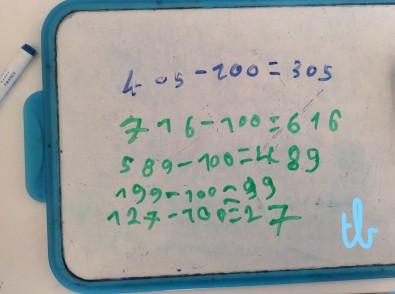 405-100=305
716-100=616
589-100=489
199-100=99
127-100=27
tb